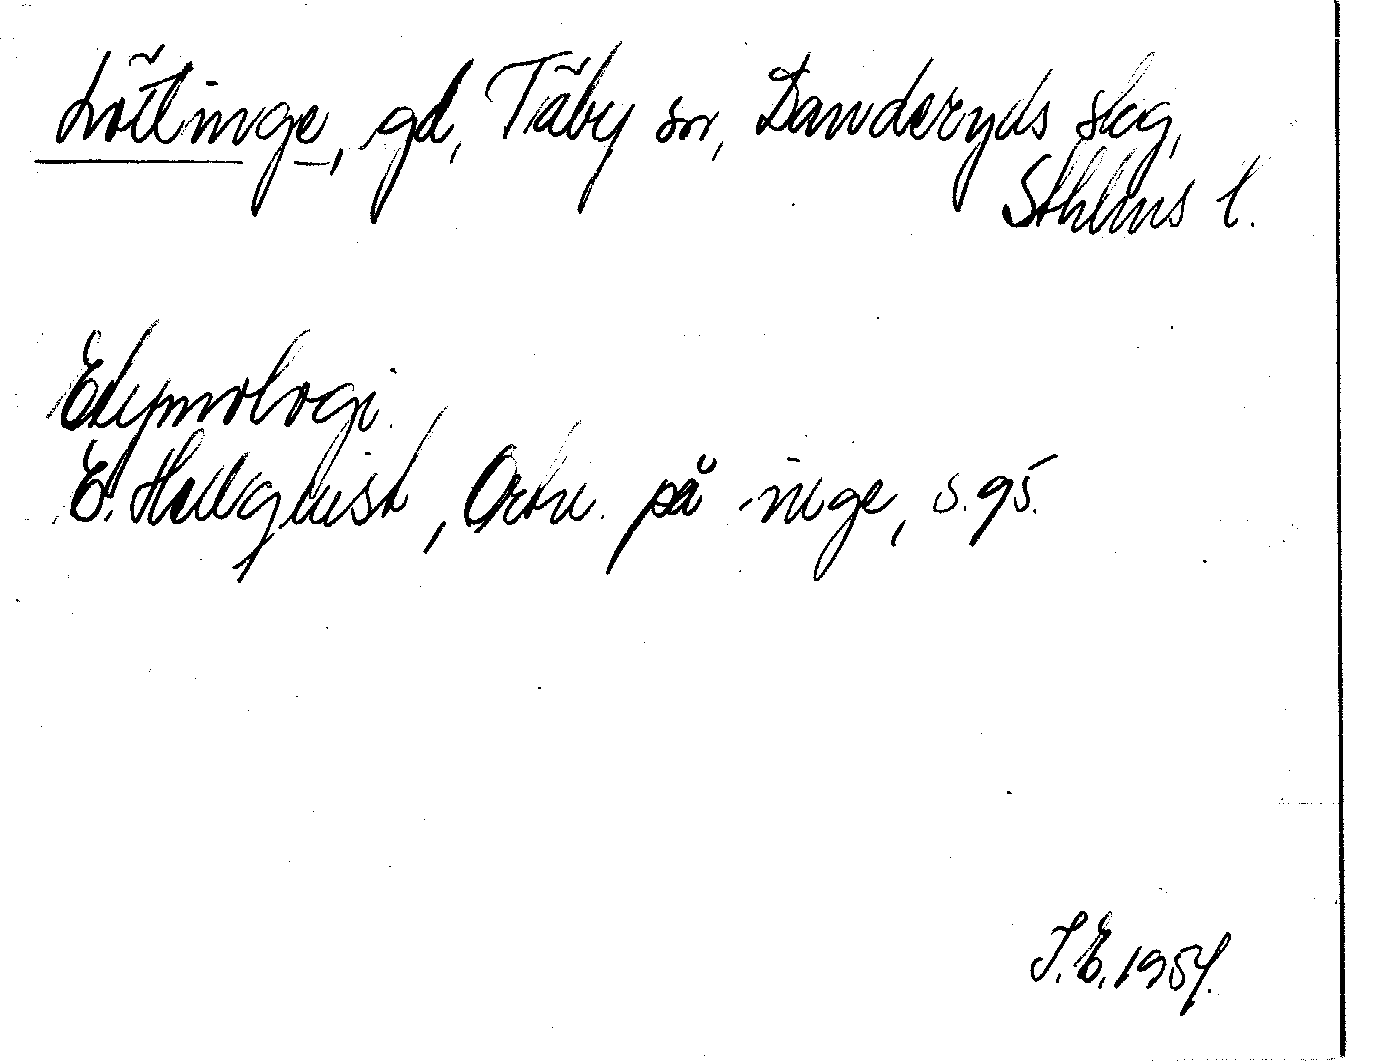 Löttinge, gd, Täby sn, Danderyds skg,
Sthlms l.
Etymologi.
E. Hellquist, Ortn. på -inge, s. 95.
I.E. 1954.